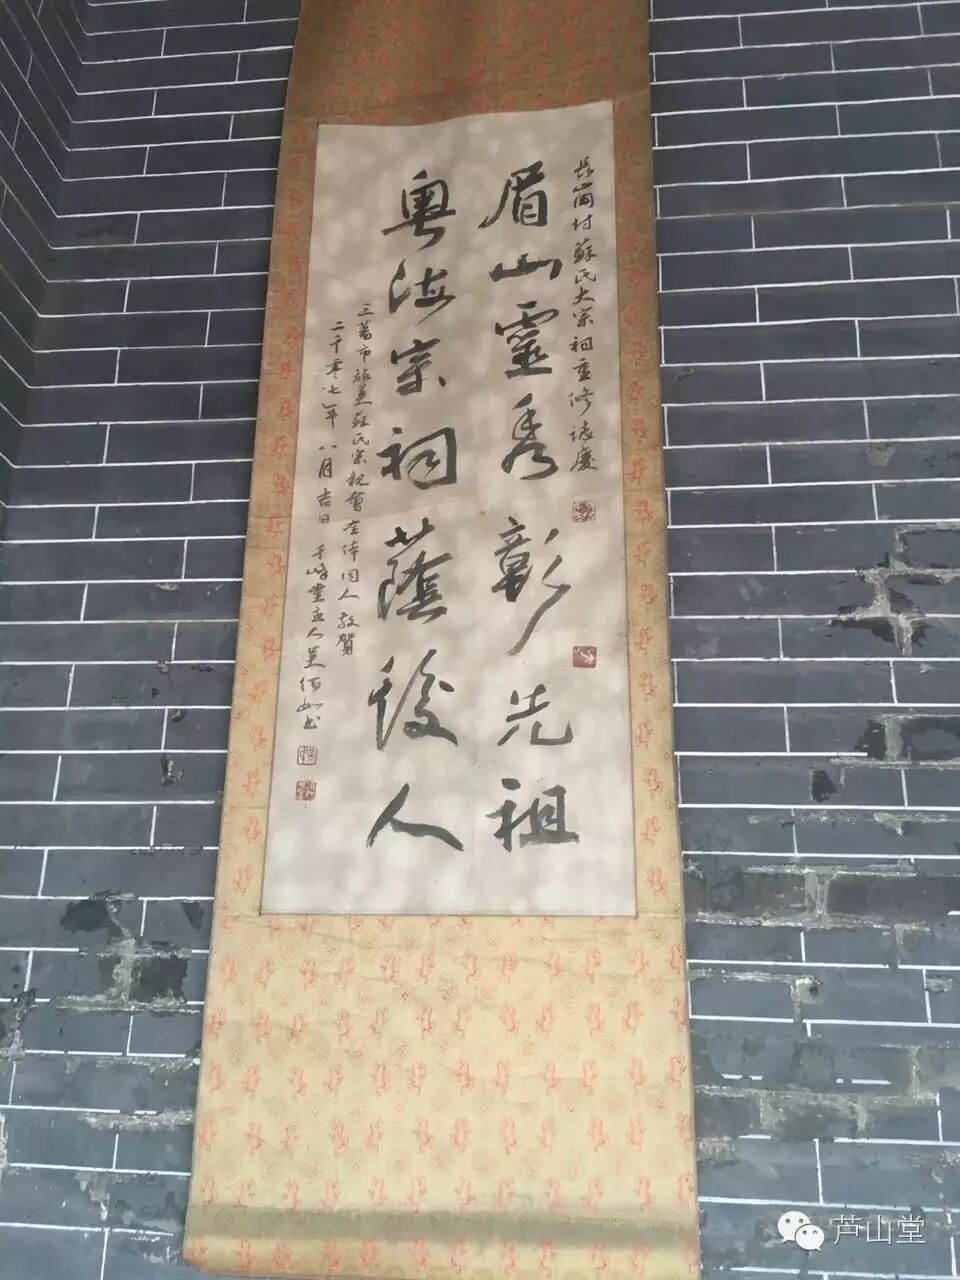 長崗村蘇氏大宗祠重修誌慶
眉山靈秀彰先祖
粵海宗祠蔭後人
三藩市旅美蘇氏宗親會全体同人敬賀
二千零七年八月吉日 吳佰如书
芦山堂